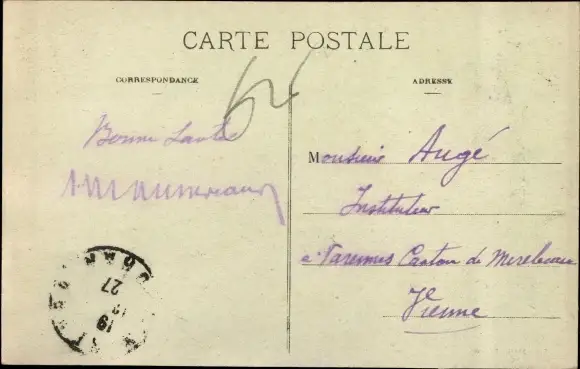 CARTE POSTALE
CORRESPONDANCE
ADRESSE
64
Bonne Santé
Monsieur Augé
Instituteur
a Varennes Canton de Mirebeau
Vienne
27
19